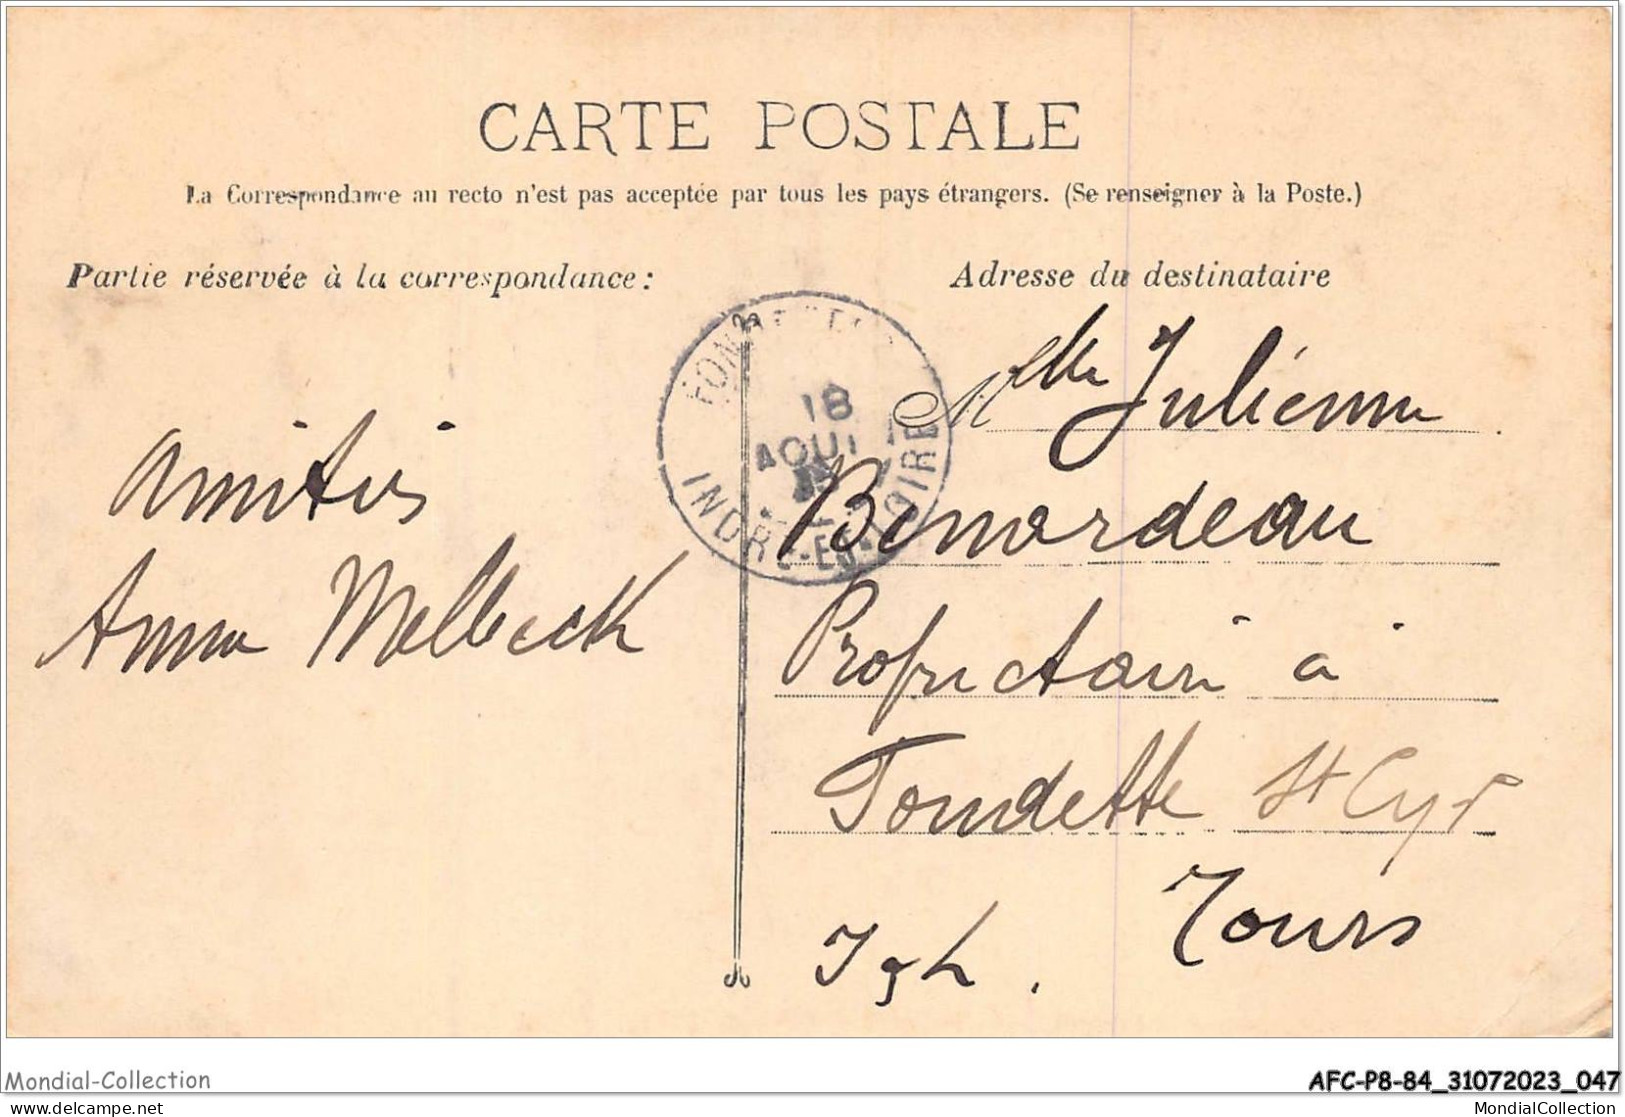 CARTE POSTALE
La Correspondance au recto n'est pas acceptée par tous les pays étrangers. (Se renseigner à la Poste.)
Partie réservée à la correspondance:
Adresse du destinataire
18
AOUT
INDRE-ET-LOIRE
Amitiés
Anna Melbeck
Mlle Julienne
Propriétaire à
St Cyr
Tours
I & L.
Mondial-Collection
AFC-P8-84_31072023_047
www.delcampe.net
MondialCollection